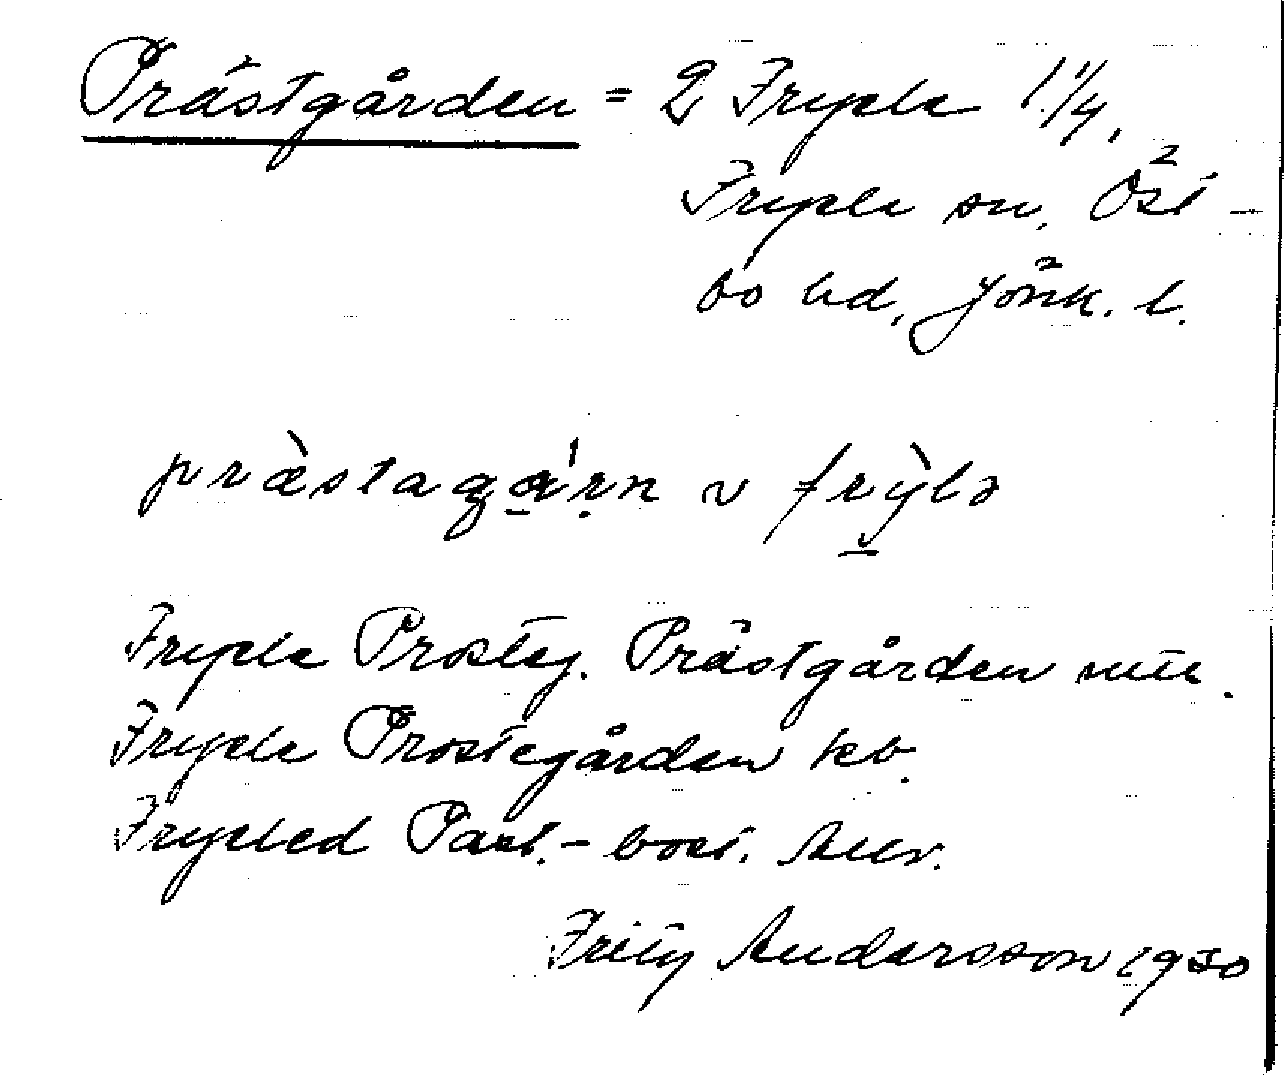 Prästgården = 2 Fryele 1 1/4,
Fryele sn, Öst-
bo hd, Jönk. l.
præstagá'rn v frỳlə
Fryele Prosteg. Prästgården
Fryele Prostegården kb.
Fryeled Past.-bost.
Fritz Andersson 1930